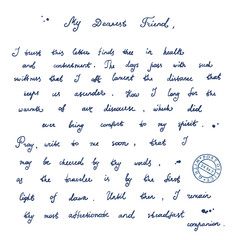 My Dearest Friend,
I trust this letter finds thee in health
and contentment. The days pass with such
swiftness that I oft lament the distance that
keeps us asunder. How I long for the
warmth of our discourse, which did
ever bring comfort to my spirit.
Pray, write to me soon, that I
may be cheered by thy words,
as the traveler is by the first
light of dawn. Until then, I remain
thy most affectionate and steadfast
companion.